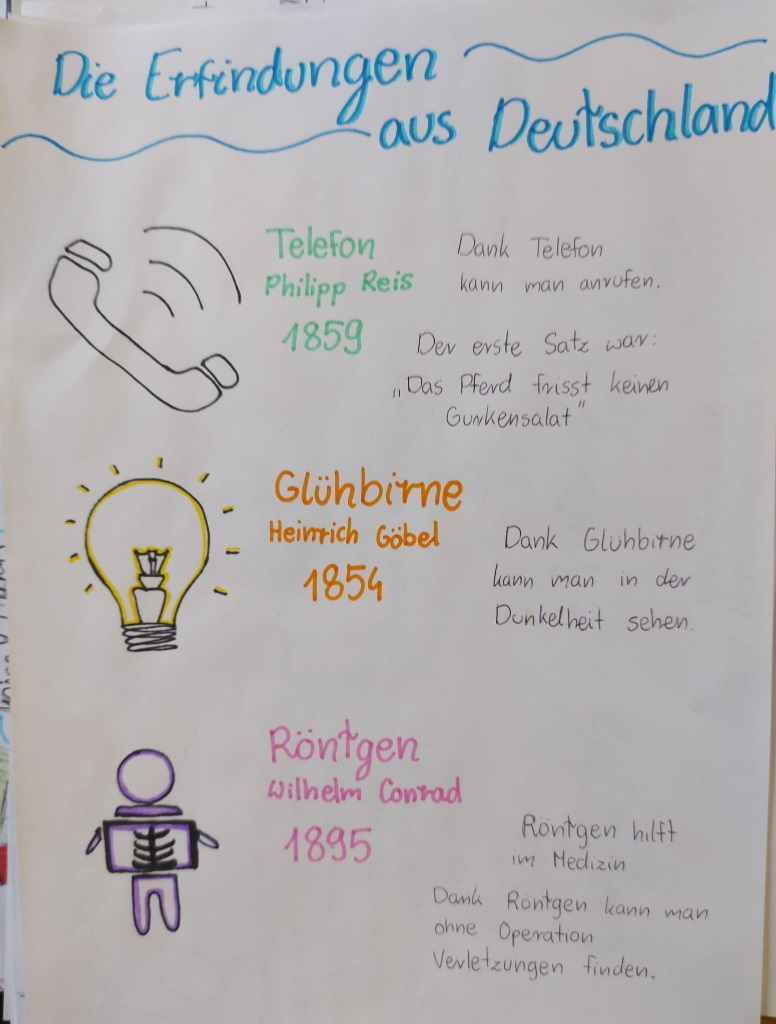 Die Erfindungen
aus Deutschland
Telefon
Philipp Reis
1859
Dank Telefon
kann man anrufen.
Der erste Satz war:
„Das Pferd frisst keinen
Gurkensalat"
Glühbirne
Heinrich Göbel
1854
Dank Glühbirne
kann man in der
Dunkelheit sehen.
Röntgen
Wilhelm Conrad
1895
Röntgen hilft
im Medizin
Dank Röntgen kann man
ohne Operation
Verletzungen finden.